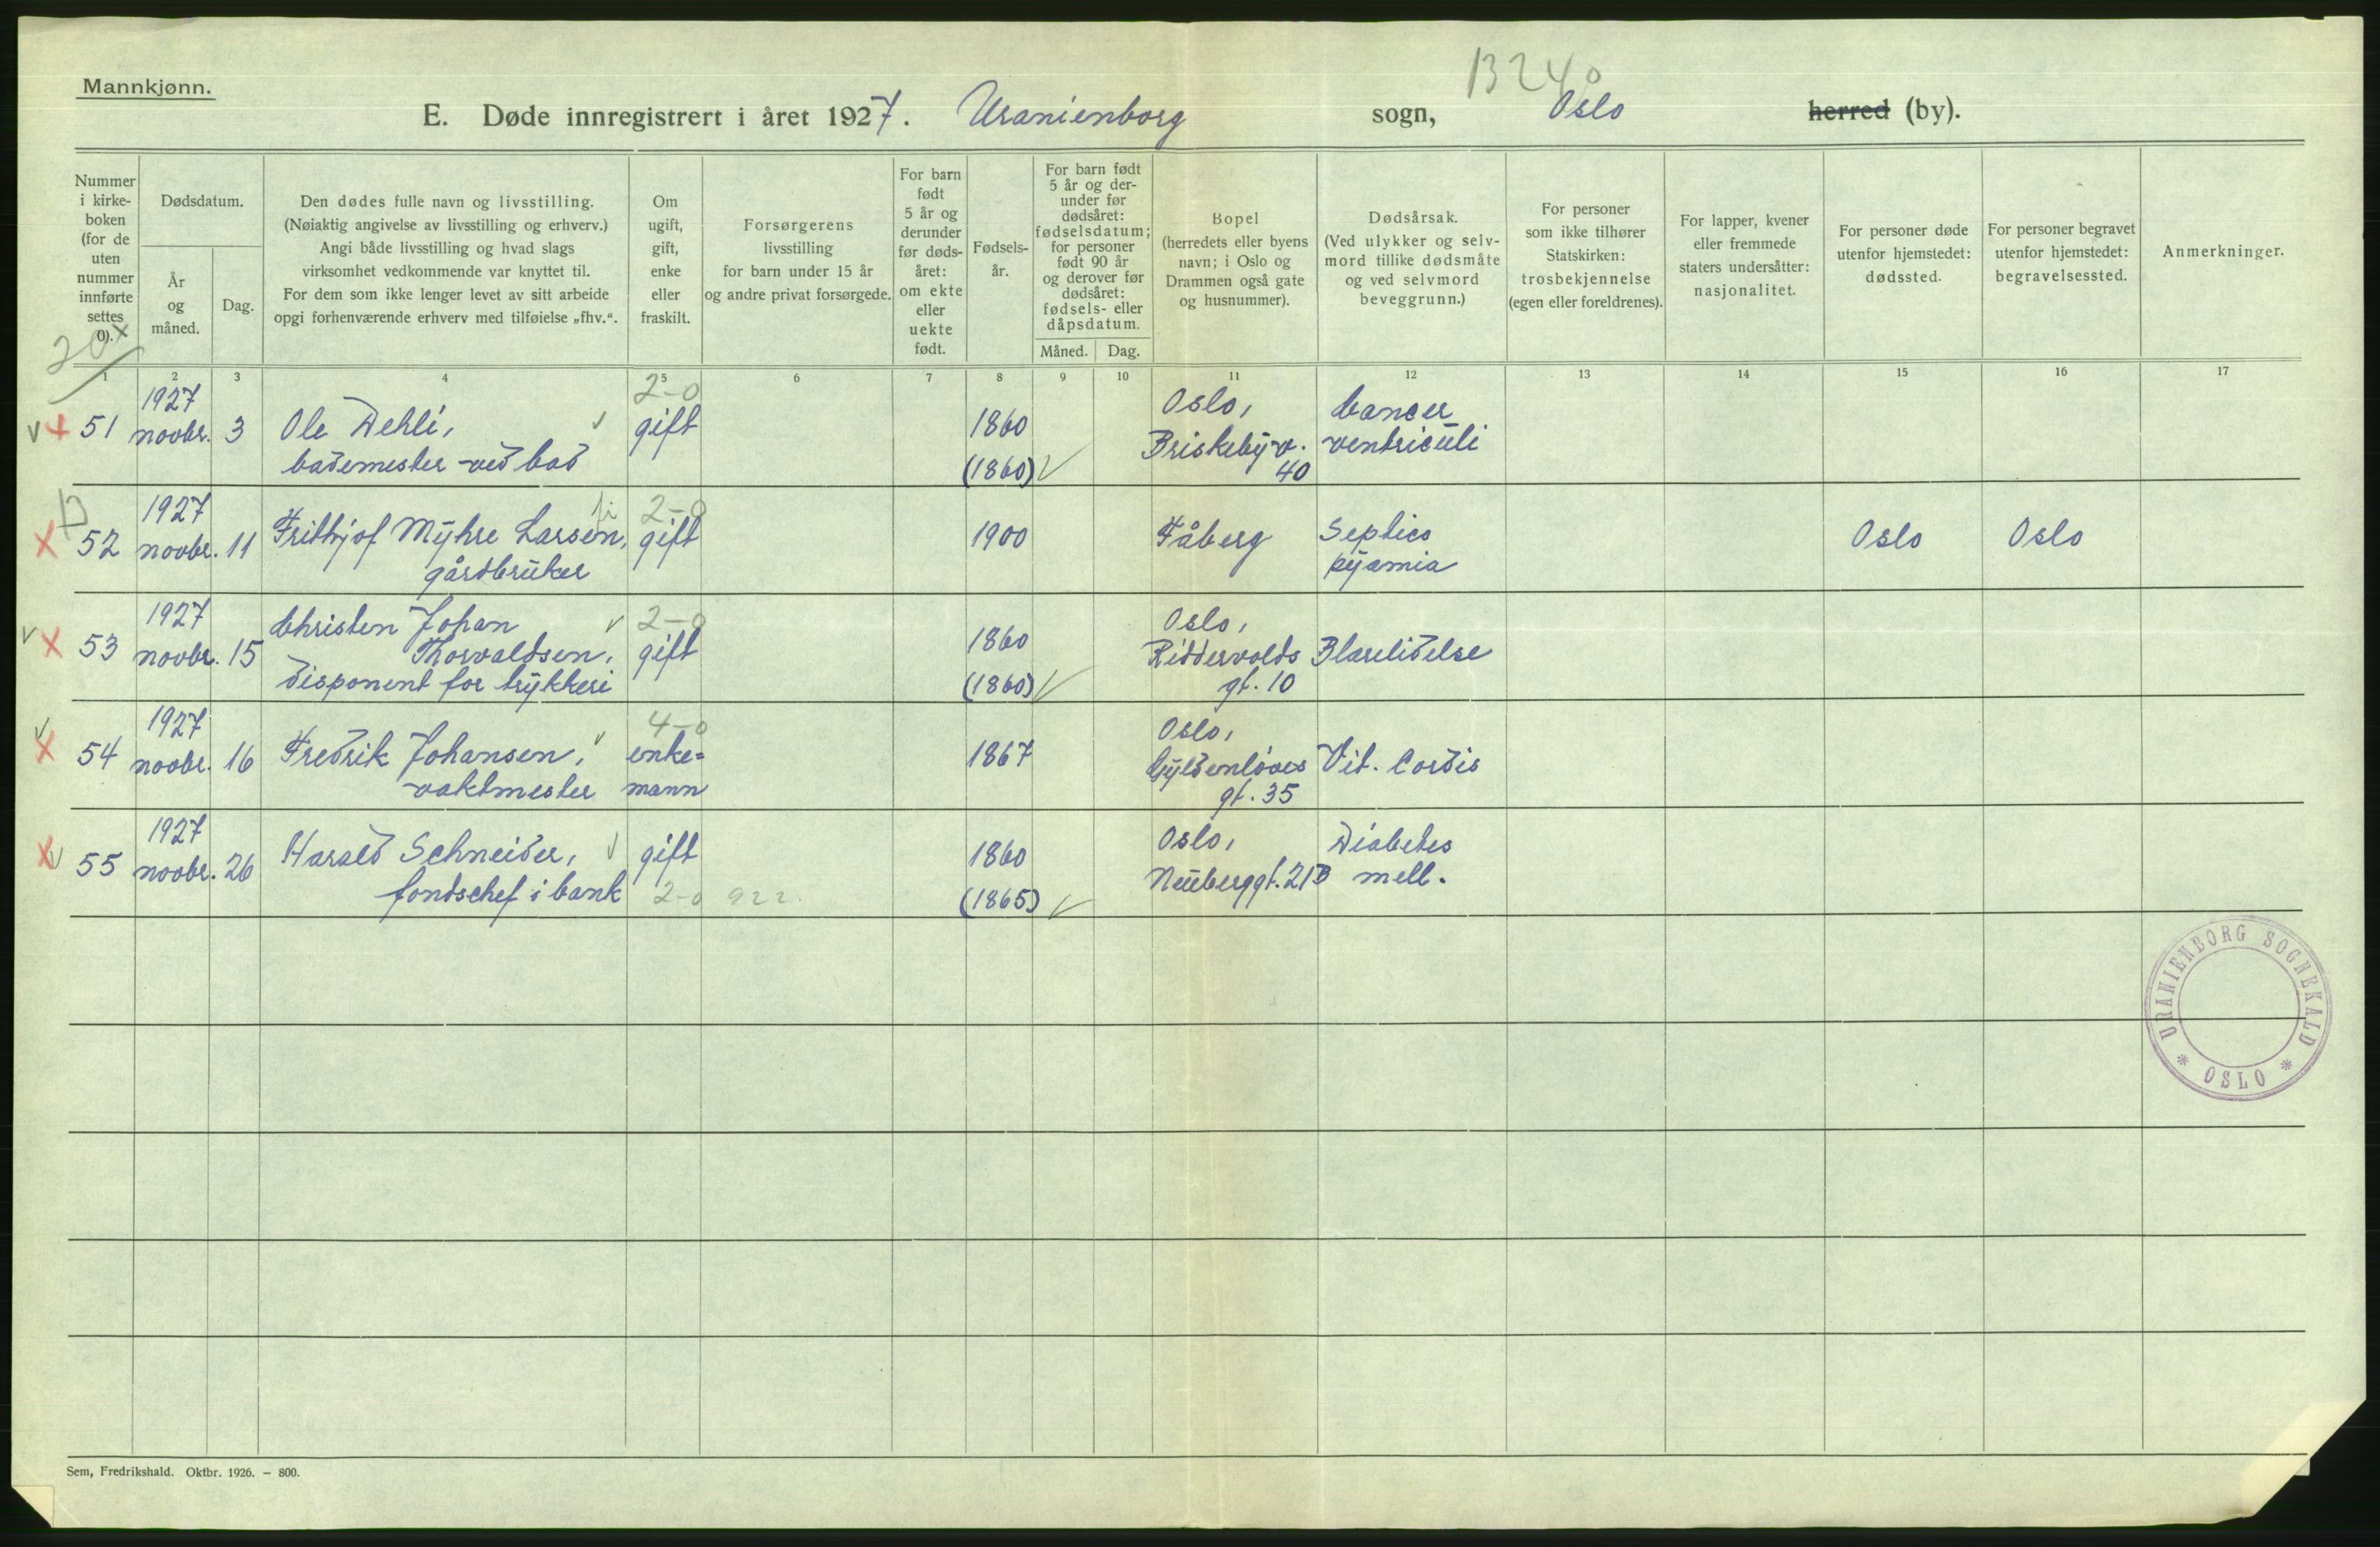 Mannkjønn.
1324
E. Døde innregistrert i året 1927. Uranienborg sogn, Oslo herred (by).
Nummer i kirke-boken (for de uten nummer innførte settes 0).
Dødsdatum.
År og måned.
Dag.
Den dødes fulle navn og livsstilling.
(Nøiaktig angivelse av livsstilling og erhverv.)
Angi både livsstilling og hvad slags
virksomhet vedkommende var knyttet til.
For dem som ikke lenger levet av sitt arbeide
opgi forhenværende erhverv med tilføielse „fhv.“.
Om ugift, gift, enke eller fraskilt.
Forsørgerens
livsstilling
for barn under 15 år
og andre privat forsørgede.
For barn født 5 år og derunder før døds-året: om ekte eller uekte født.
Fødsels-
år.
For barn født 5 år og der-under før dødsåret: fødselsdatum; for personer født 90 år og derover før dødsåret: fødsels- eller dåpsdatum.
Måned. Dag.
Bopel
(herredets eller byens
navn; i Oslo og
Drammen også gate
og husnummer).
Dødsårsak.
(Ved ulykker og selv-
mord tillike dødsmåte
og ved selvmord
beveggrunn.)
For personer
som ikke tilhører
Statskirken:
trosbekjennelse
(egen eller foreldrenes).
For lapper, kvener
eller fremmede
staters undersåtter:
nasjonalitet.
For personer døde
utenfor hjemstedet:
dødssted.
For personer begravet
utenfor hjemstedet:
begravelsessted.
Anmerkninger.
20
1 2 3 4 5 6 7 8 9 10 11 12 13 14 15 16 17
1927 2-0 Oslo, Cancer
51 novbr. 3 Ole Dehli, gift 1860 Briskebyv. ventriculi
bademester ved bad (1860) 40
1927 2-0
52 novbr. 11 Frithjof Myhre Larsen, gift 1900 Fåberg Septico Oslo Oslo
gårdbruker pyæmia
1927 Christen Johan 2-0 Oslo,
53 novbr. 15 Thorvaldsen, gift 1860 Riddervolds Blærelidelse
disponent for trykkeri (1860) gt. 10
1927 4-0 Oslo,
54 novbr. 16 Fredrik Johansen, enke= 1867 Gyldenløves Vit. Cordis
vaktmester mann gt. 35
1927 Oslo, Diabetes
55 novbr. 26 Harald Schneider, gift 1860 Neuberggt. 21B mell.
fondschef i bank 2-0 922. (1865)
URANIENBORG SOGNEKALD * OSLO *
Sem, Fredrikshald. Oktbr. 1926. — 800.